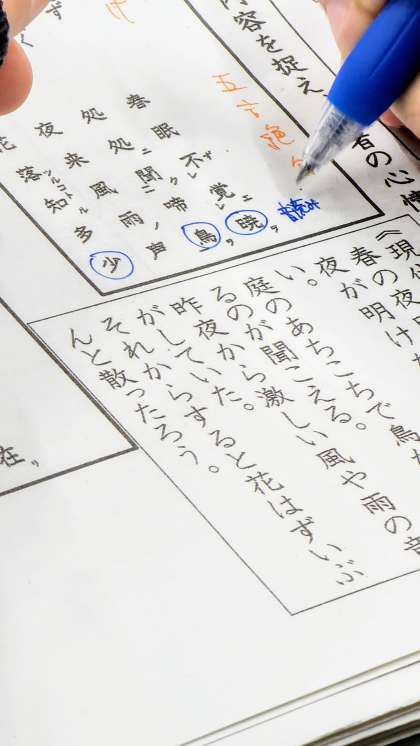 内容を捉え、
者の心情
五言絶句
春眠不覚暁
処処聞啼鳥
夜来風雨声
花落知多少
《現代
夜が明け
い。
庭のあちこちで鳥が
るのが聞こえる。
昨夜から激しい風や雨の音
がしていた。
それからすると花はずいぶ
んと散ったろう。
在リ